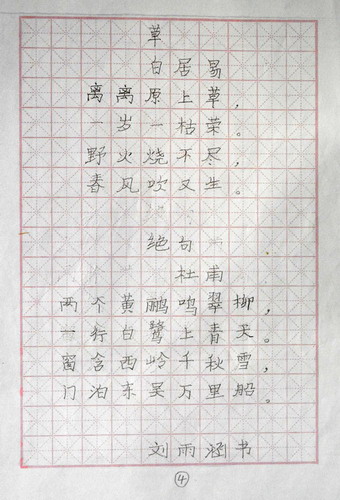 草
白居易
离离原上草，
一岁一枯荣。
野火烧不尽，
春风吹又生。
绝句
杜甫
两个黄鹂鸣翠柳，
一行白鹭上青天。
窗含西岭千秋雪，
门泊东吴万里船。
刘雨涵书
④